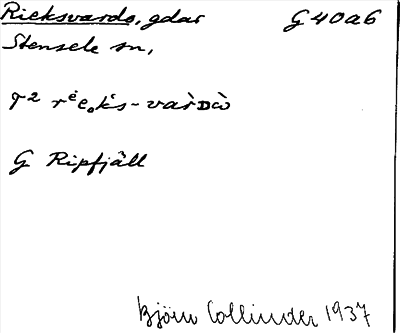 Rieksvardo, gdar G40a6
Stensele sn,
G Ripfjäll
Björn Collinder 1937